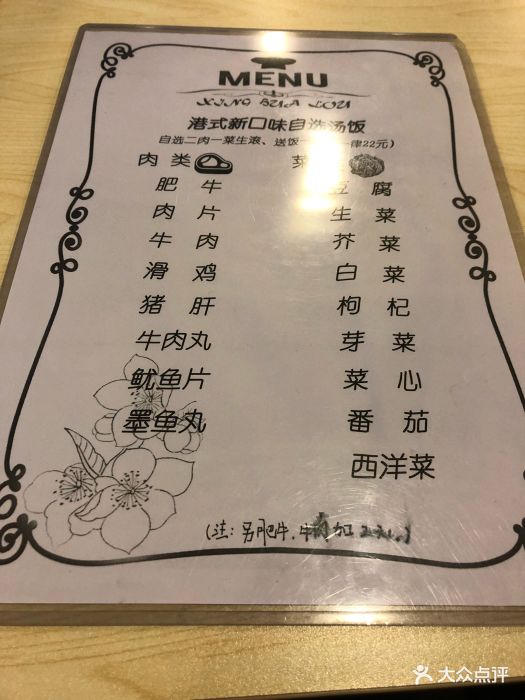 MENU
XING HUA LOU
港式新口味自选汤饭
自选二肉一菜生滚、送饭一 律22元)
肉类 菜
肥牛 豆腐
肉片 生菜
牛肉 芥菜
滑鸡 白菜
猪肝 枸杞
牛肉丸 芽菜
鱿鱼片 菜心
墨鱼丸 番茄
西洋菜
(注:另肥牛.牛肉加
大众点评